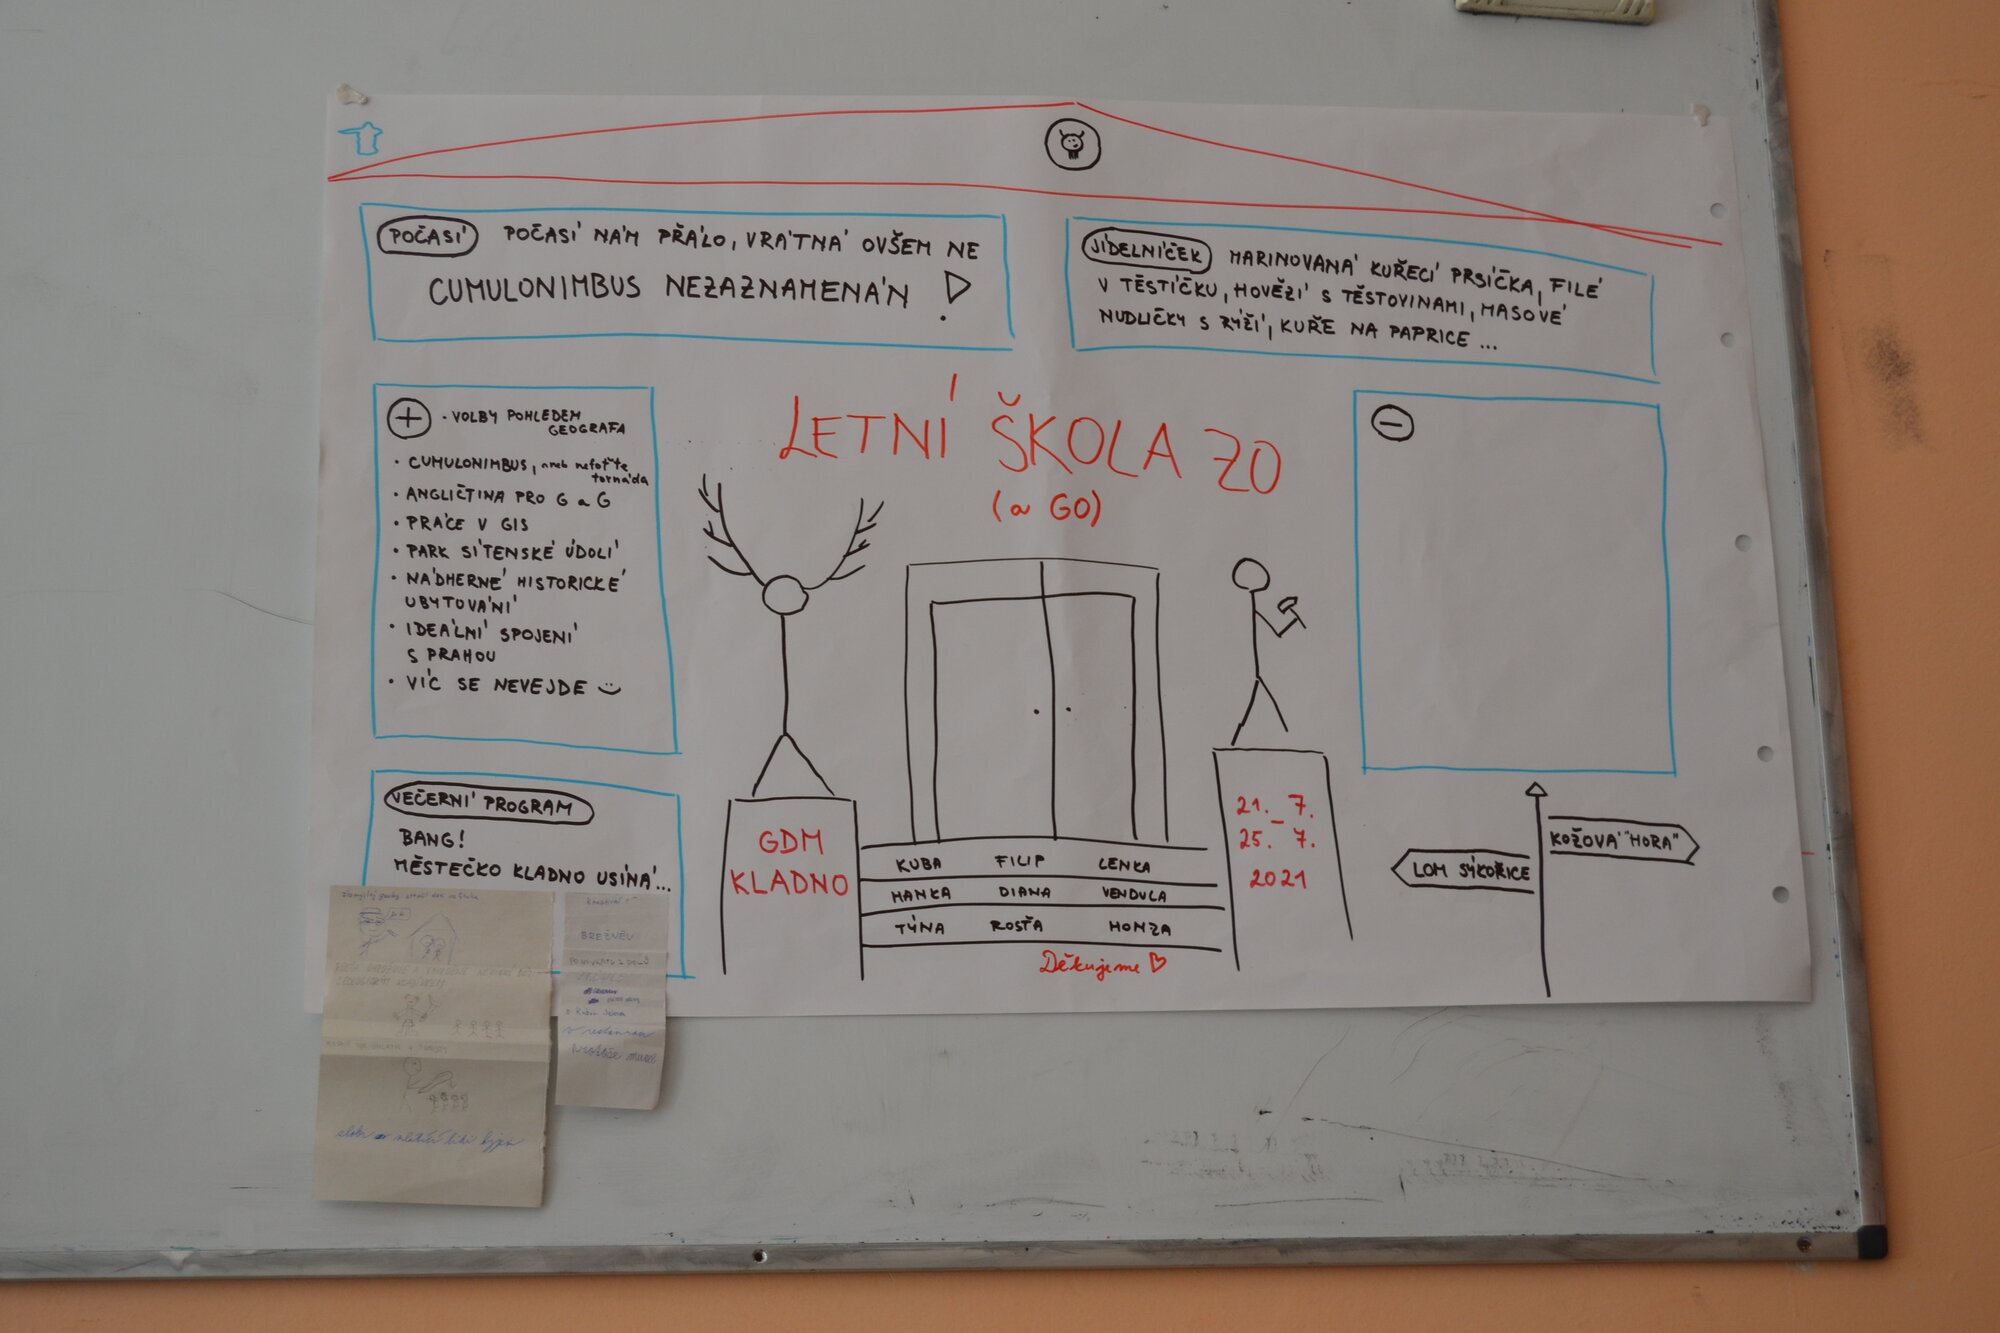 POČASÍ POČASÍ NÁM PŘÁLO, VRÁTNÁ OVŠEM NE
CUMULONIMBUS NEZAZNAMENÁN !
JÍDELNÍČEK MARINOVANÁ KUŘECÍ PRSÍČKA, FILÉ
V TĚSTÍČKU, HOVĚZÍ S TĚSTOVINAMI, MASOVÉ
NUDLIČKY S RÝŽÍ, KUŘE NA PAPRICE ...
+ · VOLBY POHLEDEM
GEOGRAFA
· CUMULONIMBUS, aneb nefoťte
tornáda
· ANGLIČTINA PRO G a G
· PRÁCE V GIS
· PARK SÍTENSKÉ ÚDOLÍ
· NÁDHERNÉ HISTORICKÉ
UBYTOVÁNÍ
· IDEÁLNÍ SPOJENÍ
S PRAHOU
· VÍC SE NEVEJDE
LETNÍ ŠKOLA ZO
(a GO)
−
VEČERNÍ PROGRAM
BANG!
MĚSTEČKO KLADNO USÍNÁ...
GDM
KLADNO
KUBA FILIP LENKA
HANKA DIANA VENDULA
TÝNA ROSŤA HONZA
Děkujeme
21. 7.
–
25. 7.
2021
KOŽOVÁ "HORA"
LOM SÝKOŘICE
BREŽNĚV